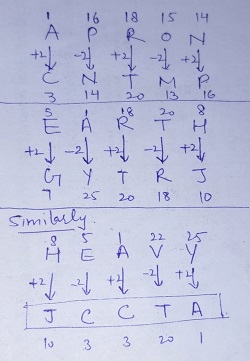 1 16 18 15 14
A P R O N
+2↓ -2↓ +2↓ -2↓ +2↓
C N T M P
3 14 20 13 16
5 1 18 20 8
E A R T H
+2↓ -2↓ +2↓ -2↓ +2↓
G Y T R J
7 25 20 18 10
Similarly.
8 5 1 22 25
H E A V Y
+2↓ -2↓ +2↓ -2↓ +2↓
J C C T A
10 3 3 20 1